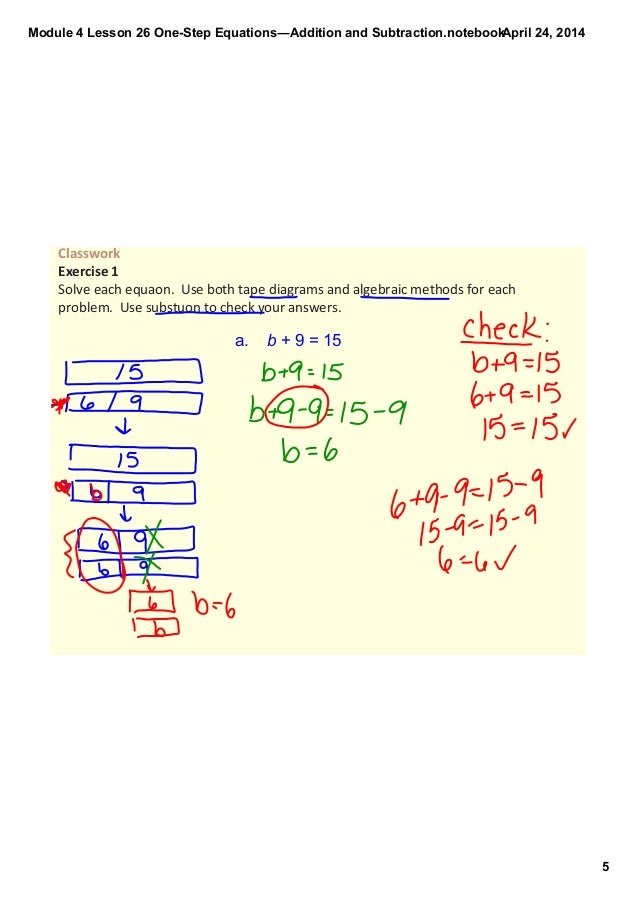 Module 4 Lesson 26 One-Step Equations—Addition and Subtraction.notebook April 24, 2014
Classwork
Exercise 1
Solve each equaon. Use both tape diagrams and algebraic methods for each
problem. Use substuon to check your answers.
a. b + 9 = 15
15
6 / 9
15
b 9
6 9
b 9
6
b
b=6
b+9=15
b+9-9=15-9
b=6
check:
b+9=15
6+9=15
15=15✓
6+9-9=15-9
15-9=15-9
6=6✓
5